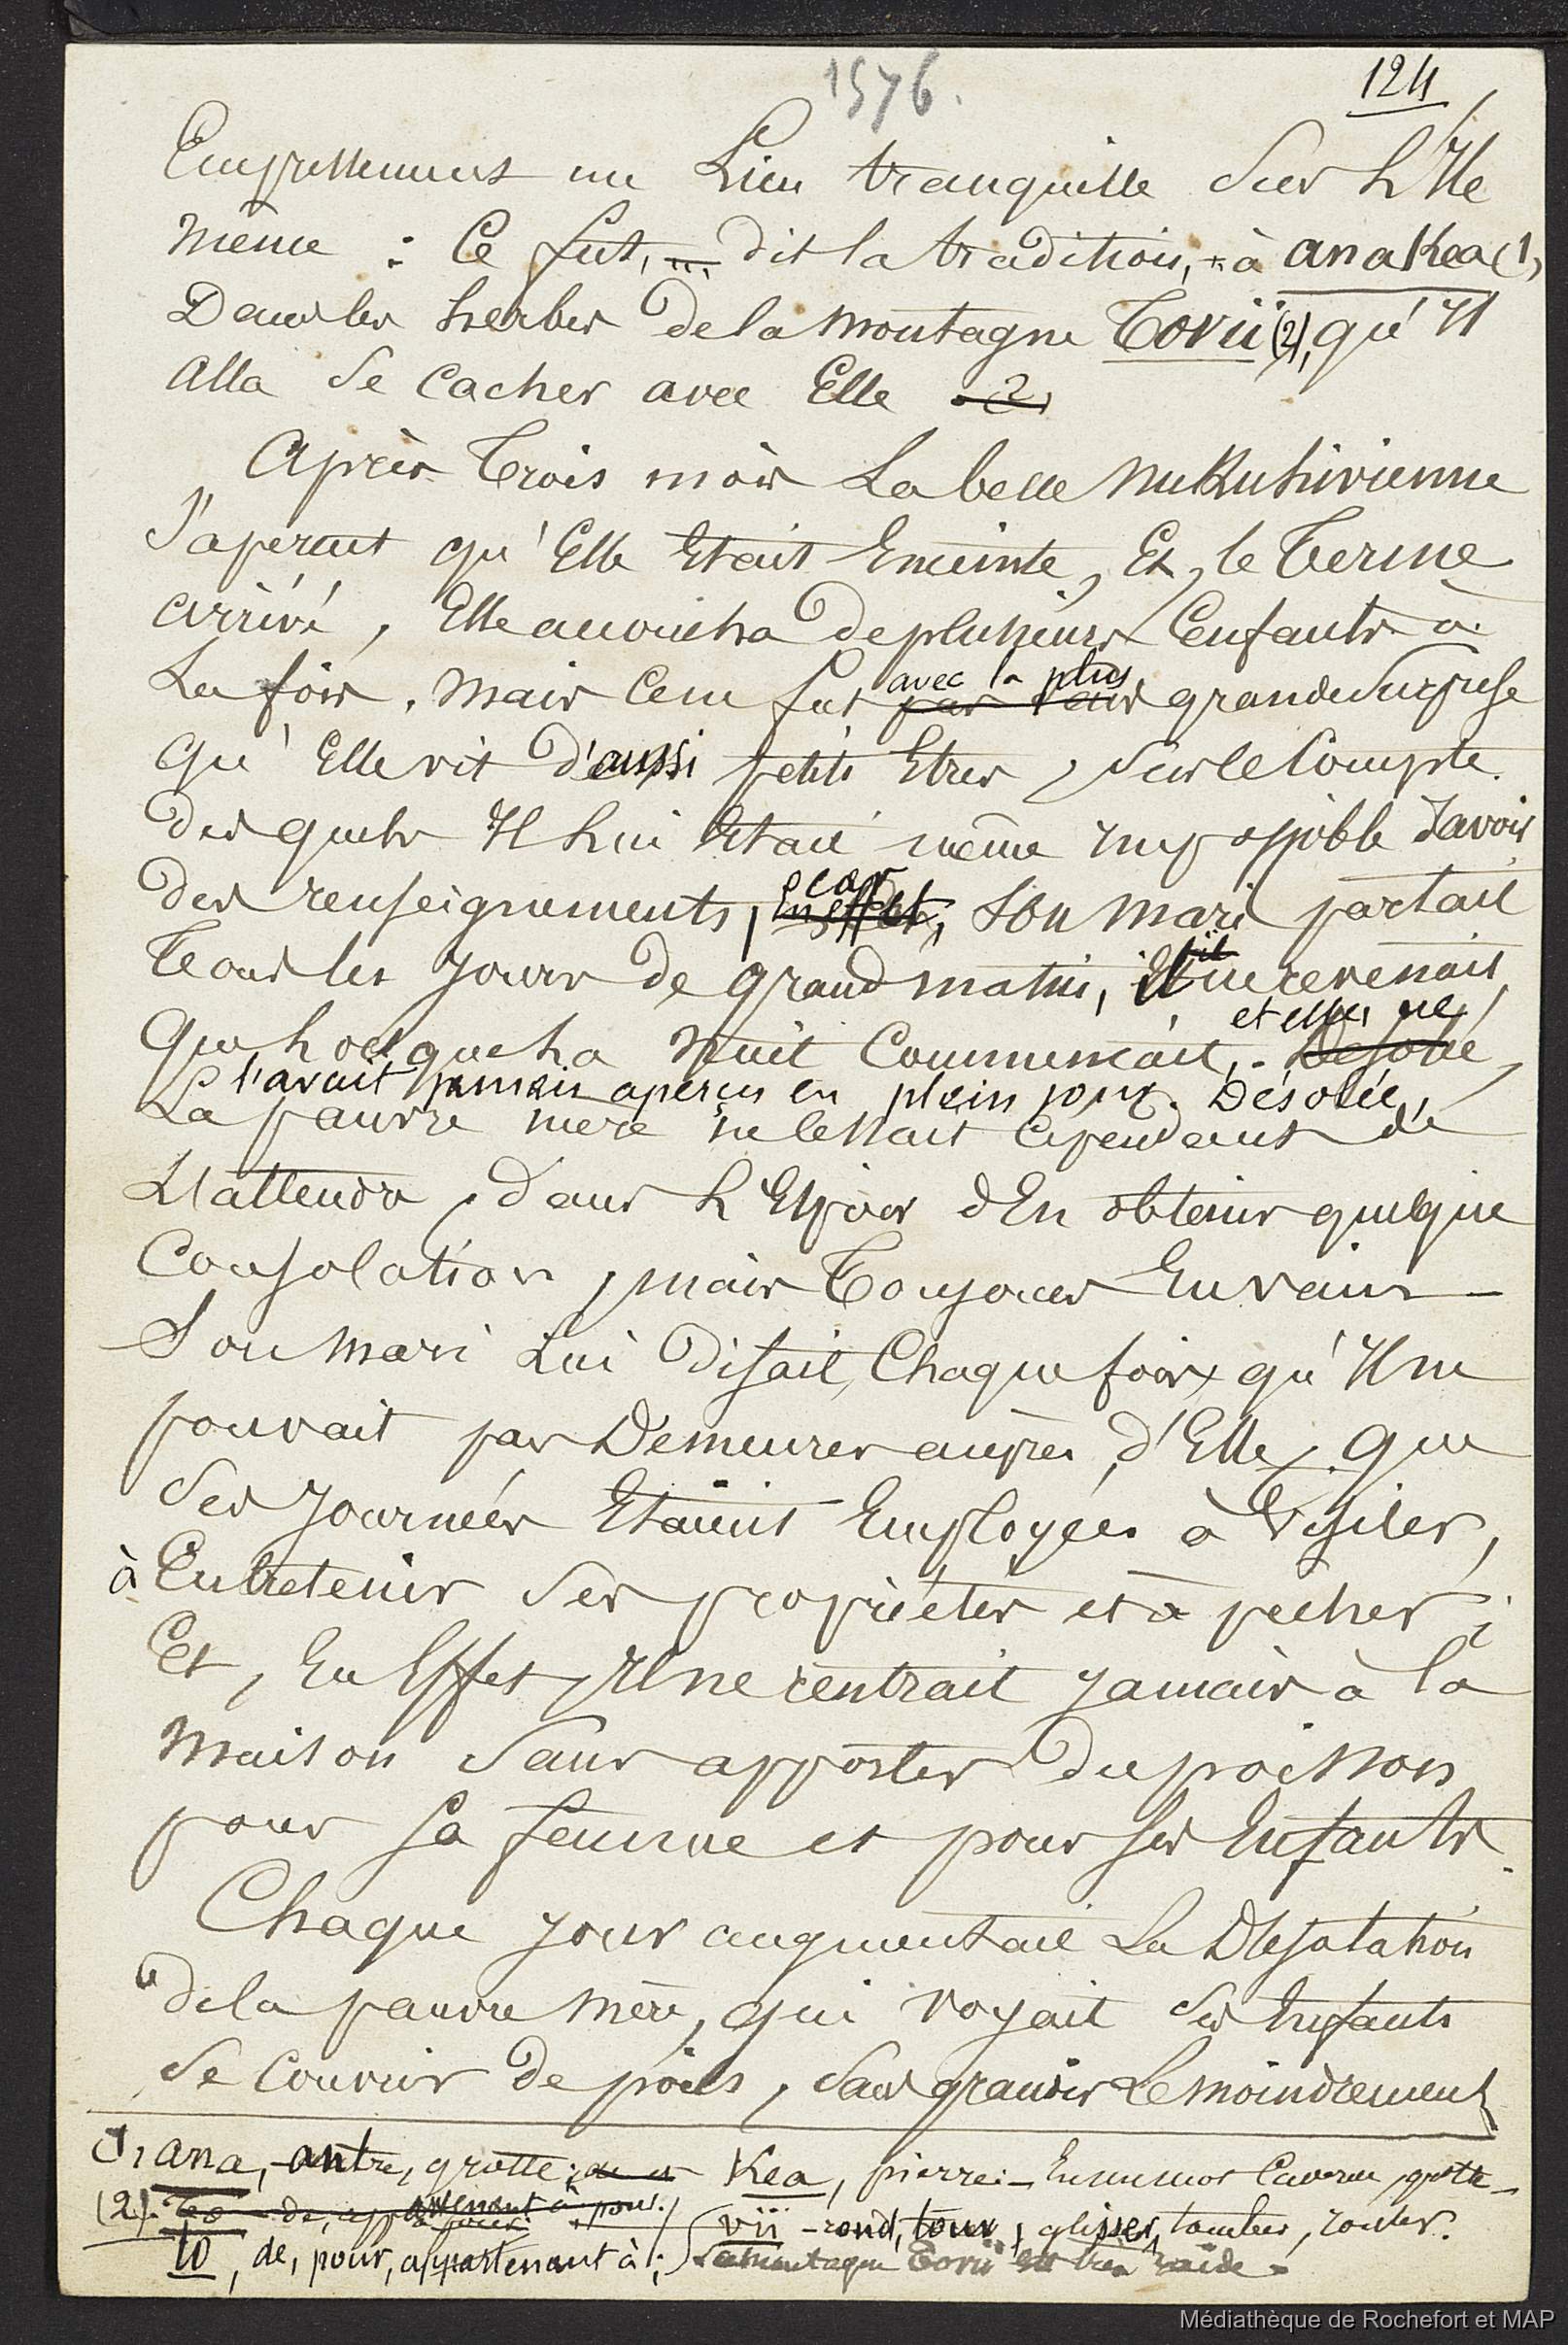 1576.
124
Empressement un Lieu tranquille Sur L'Ile
même : Ce fut, dit la tradition, à anakea (1)
Dans les herbes de la montagne Tovii (2), qu'Il
alla Se Cacher avec Elle 2
Après Trois mois La belle NuKuhivienne
S'aperçut qu'Elle Etait Enceinte, Et, le Terme
arrivé, Elle accoucha de plusieurs Enfants à
La fois. Mais Ce ne fut avec la plus grande Surprise
qu'Elle vit d'aussi petits Etres, Sur le Compte
des quels Il Lui Etait même impossible d'avoir
des renseignements, En effet, car Son Mari partait
Tous les Jours de grand matin, il ne revenait
que Lorsque La Nuit Commençait, et elle ne Désolée
l'avait jamais aperçu en plein jour. Désolée,
La pauvre mère ne Cessait Cependant de
L'attendre, dans L'Espoir d'En obtenir quelque
Consolation, mais Toujours En vain –
Son Mari Lui disait, Chaque fois, qu'Il ne
pouvait pas Demeurer auprès d'Elle, que
Ses Journées Etaient Employées à Visiter,
à Entretenir Ses propriétés et à pêcher ;
Et, En Effet, Il ne rentrait Jamais à la
Maison Sans apporter du poisson
pour Sa femme et pour Ses Enfants.
Chaque Jour augmentait La Désolation
de la pauvre Mère, qui voyait Ses Enfants
Se Couvrir de poils, Sans grandir Le moindrement
(1) ana, antre, grotte ; Kea, pierre : En un mot Caverne, grotte –
(2). To – de, appartenant à, pour. vii – rond, tour, glisser, tomber, rouler.
to, de, pour, appartenant à ; La montagne Tovii est très raide.
Médiathèque de Rochefort et MAP